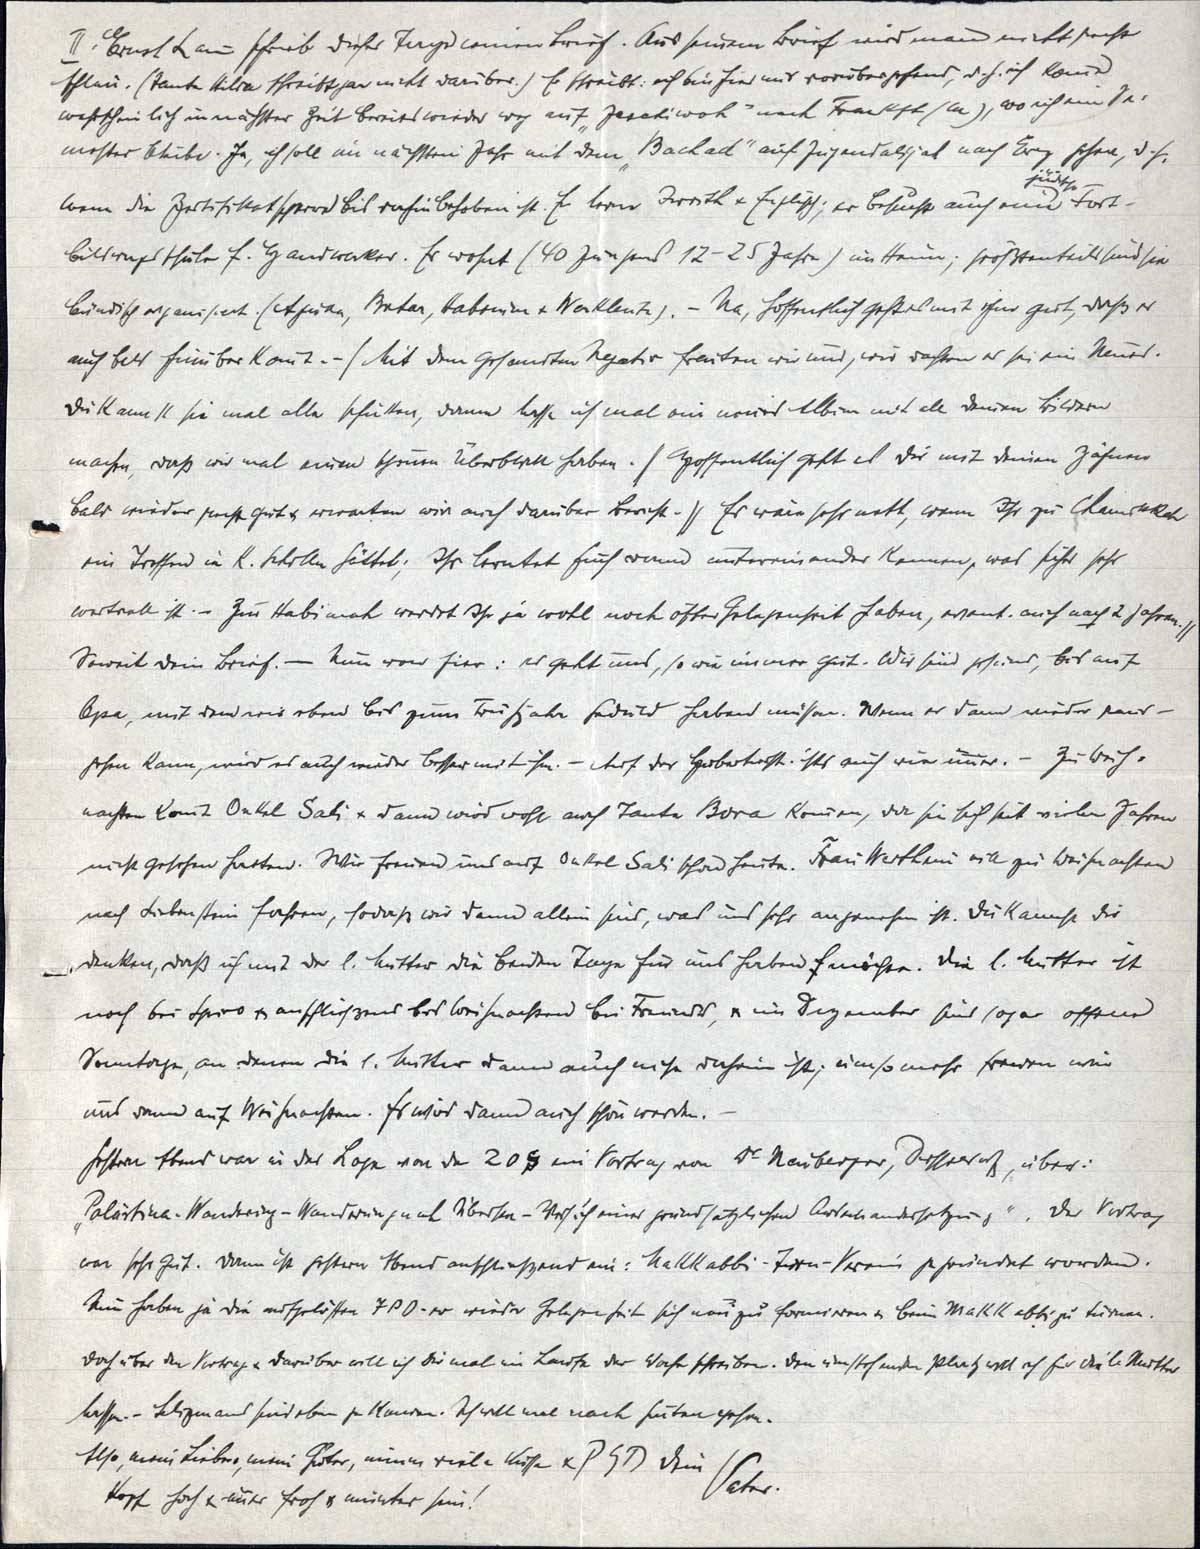 II. Ernst L. aus schrieb dieser Tage einen Brief. Aus seinem Brief wird man nicht recht
schlau. (Tante Hilda schreibt gar nicht darüber.) Er schreibt: ich bin hier nur vorübergehend, d.h. ich komme
wahrscheinlich in nächster Zeit bereits wieder weg auf nach Frankft (M), wo ich ein Se-
mester bleibe. Ja, ich soll im nächsten Jahr mit dem „Bachad" auf Jugendalijah nach Erez gehen, d.h.
wenn die Zertifikatsperre bis dahin behoben ist. Er lernt Iwrith & Englisch; er besucht auch eine jüdische Fort-
bildungsschule f. Handwerker. Er wohnt (40 Jungens 12-25 Jahre) im Heim; größtenteils sind sie
bündisch organisiert. (Betar, Habonim & Werkleute). - Na, hoffentlich geht es mit ihm gut, daß er
auch bald hinüber kommt. - / Mit dem gesandten Negativ freuten wir uns, wir dachten es sei ein Neues.
Du kannst sie mal alle schicken, dann lasse ich mal ein neues Album mit all deinen Bildern
machen, daß wir mal einen schönen Überblick haben. / Hoffentlich geht es Dir mit deinen Zähnen
bald wieder recht gut & erwarten wir auch darüber Bericht. // Es wäre sehr nett, wenn Ihr zu Chanukkah
ein Treffen in K. hättet; Ihr lerntet Euch dann untereinander kennen, was sicher sehr
wertvoll ist. - Zur Habimah werdet Ihr ja wohl noch öfter Gelegenheit haben, event. auch nach 2 Jahren. //
Soweit dein Brief. — Nun von hier: es geht uns, so wie immer gut. Wir sind gesund, bis auf
Opa, mit dem wir eben bis zum Frühjahr Geduld haben müssen. Wenn er dann wieder raus-
gehen kann, wird es auch wieder besser mit ihm. - Auf der ists auch wie immer. - Zu Weih-
nachten kommt Onkel Sali & dann wird wohl auch Tante Bora kommen, da sie sich seit vielen Jahren
nicht gesehen hatten. Wir freuen uns auf Onkel Sali schon heute. Frau Wertheim will zu Weihnachten
nach Liebenstein fahren, sodaß wir dann allein sind, was uns sehr angenehm ist. Du kannst dir
denken, daß ich mit der l. Mutter die beiden Tage für uns haben möchte. Die l. Mutter ist
noch bei Spiro & anschließend bis Weihnachten bei Freunds, & im Dezember sind sogar offene
Sonntage, an denen die l. Mutter dann auch nicht daheim ist; umso mehr freuen wir
uns dann auf Weihnachten. Es wird dann auch schön werden. —
Gestern Abend war in der Loge von der ZOG ein Vortrag von Dr Neuberger, Düsseldorf, über:
„Palästina-Wanderung - Wanderung nach Übersee - Versuch einer grundsätzlichen Auseinandersetzung". Der Vortrag
war sehr gut. Dann ist gestern Abend anschließend ein: Makkabbi-Turn-Verein gegründet worden.
Nun haben ja die aufgelösten JPD-er wieder Gelegenheit sich neu zu formieren & beim Makkabbi zu turnen.
Doch über den Vortrag & darüber will ich Dir mal im Laufe der Woche schreiben. Den umstehenden Platz will ich für die l. Mutter
lassen. - sind eben gekommen. Ich will mal nach hinten gehen.
Also, mein Lieber, mein Guter, nimm viele Küsse & Dein Vater.
Kopf hoch & immer froh & munter sein!